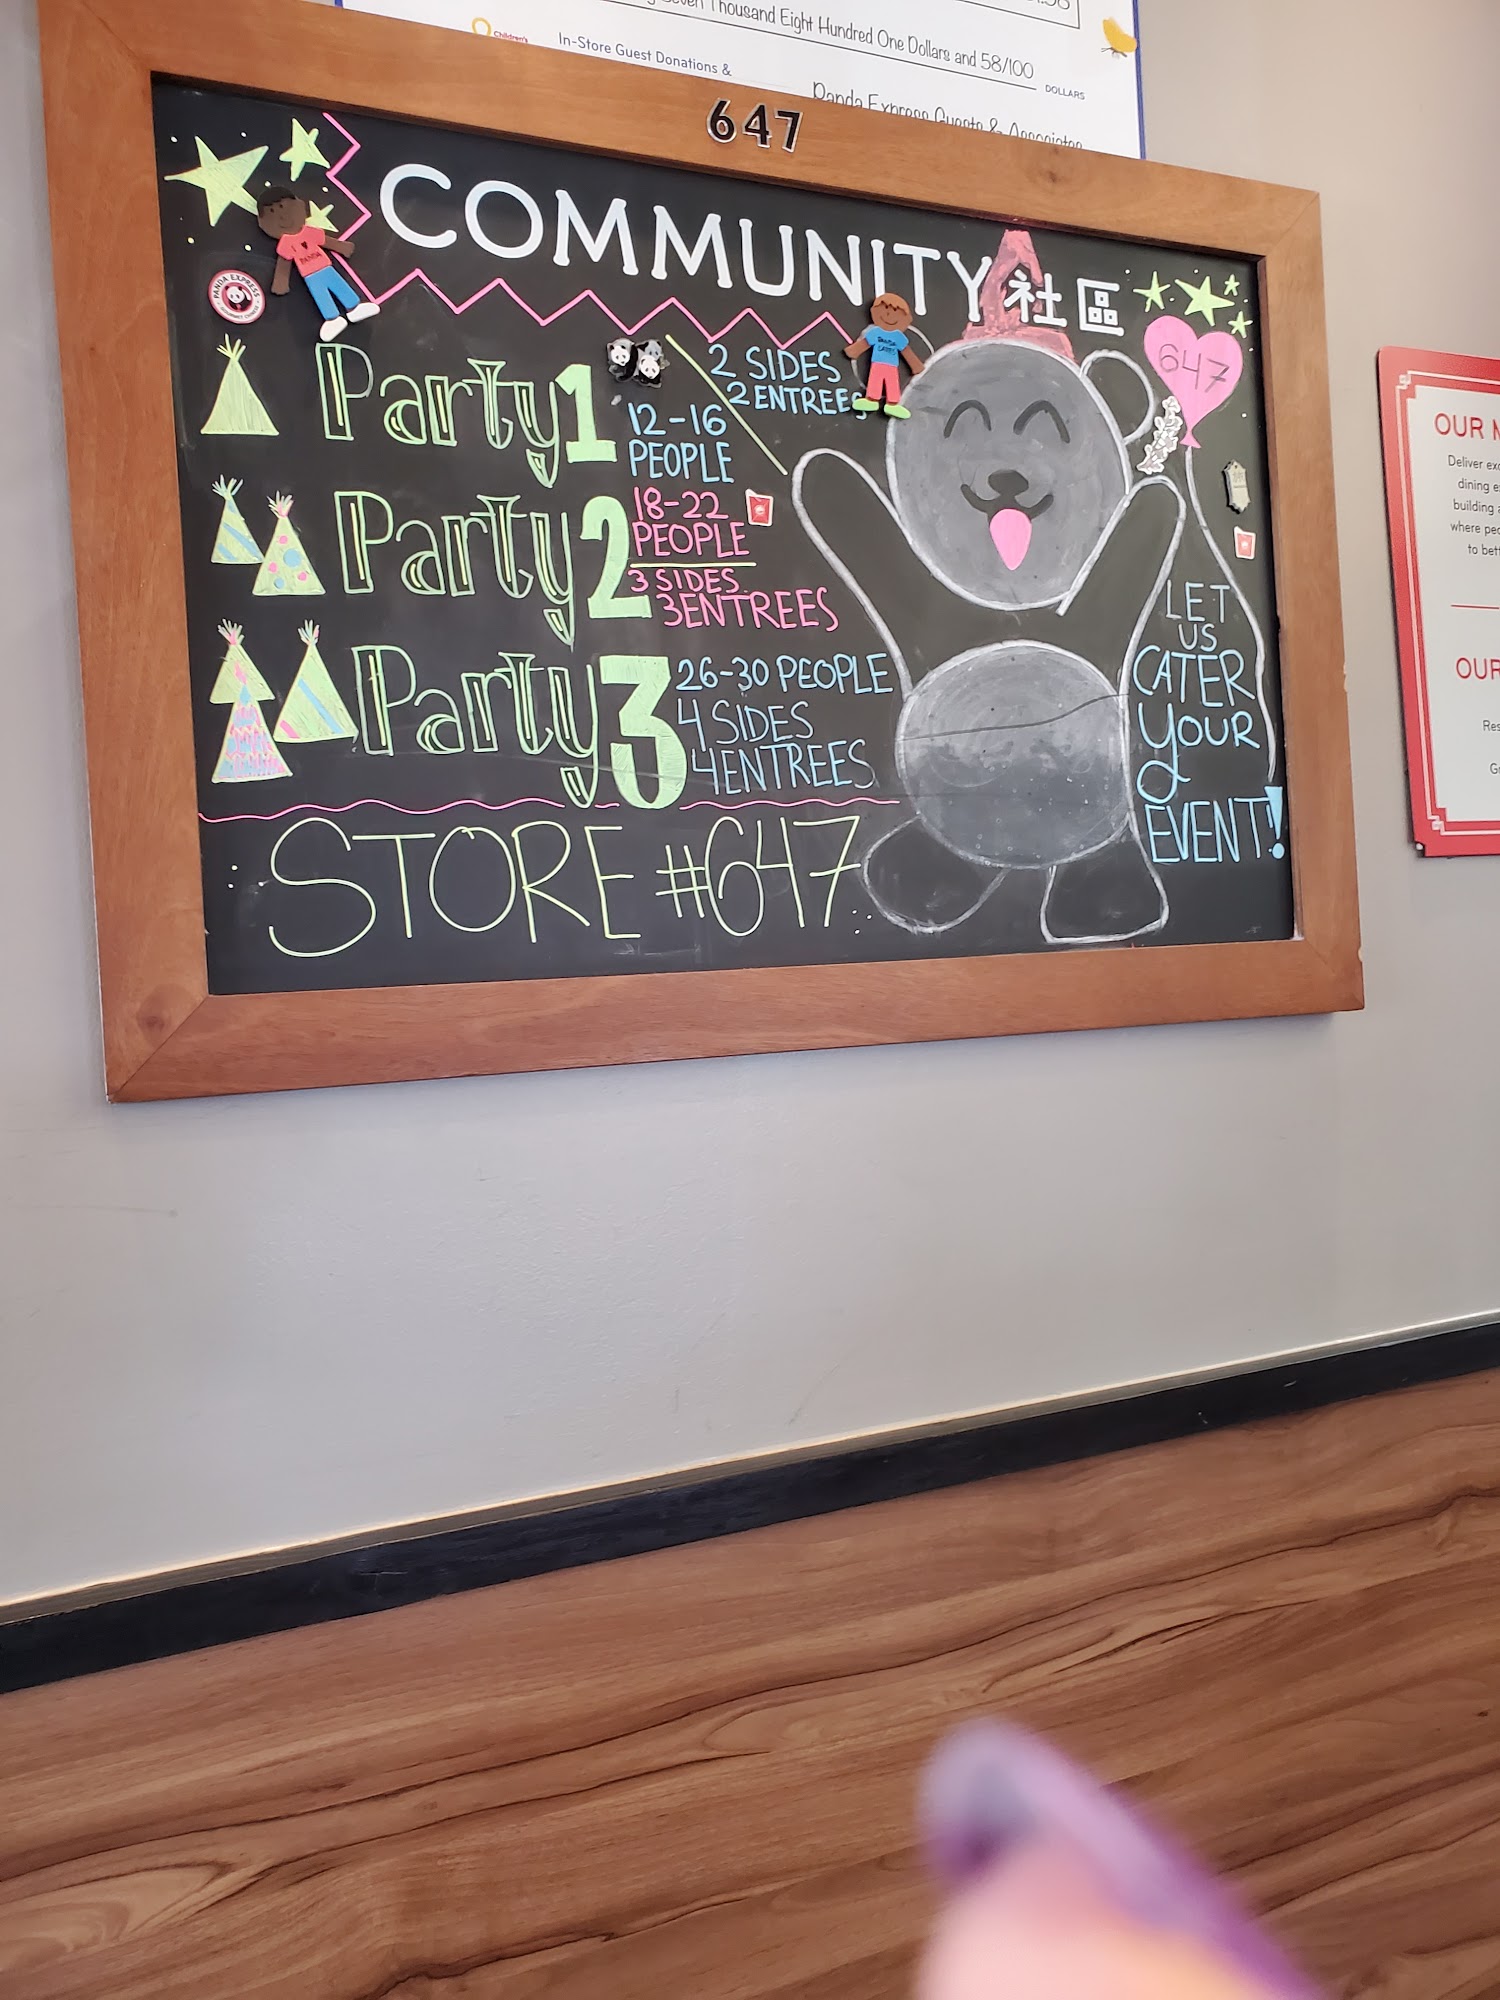 Seven Thousand Eight Hundred One Dollars and 58/100
DOLLARS
Children's
In-Store Guest Donations &
Panda Express Guests & Associates
647
COMMUNITY 社區
PANDA EXPRESS
GOURMET CHINESE
I ♥ PANDA
PANDA CARES
Party 1
12-16
PEOPLE
2 SIDES
2 ENTREES
Party 2
18-22
PEOPLE
3 SIDES
3 ENTREES
Party 3
26-30 PEOPLE
4 SIDES
4 ENTREES
STORE #647
647
LET
US
CATER
YOUR
EVENT!
OUR
Deliver
dining
building
where
to
OUR